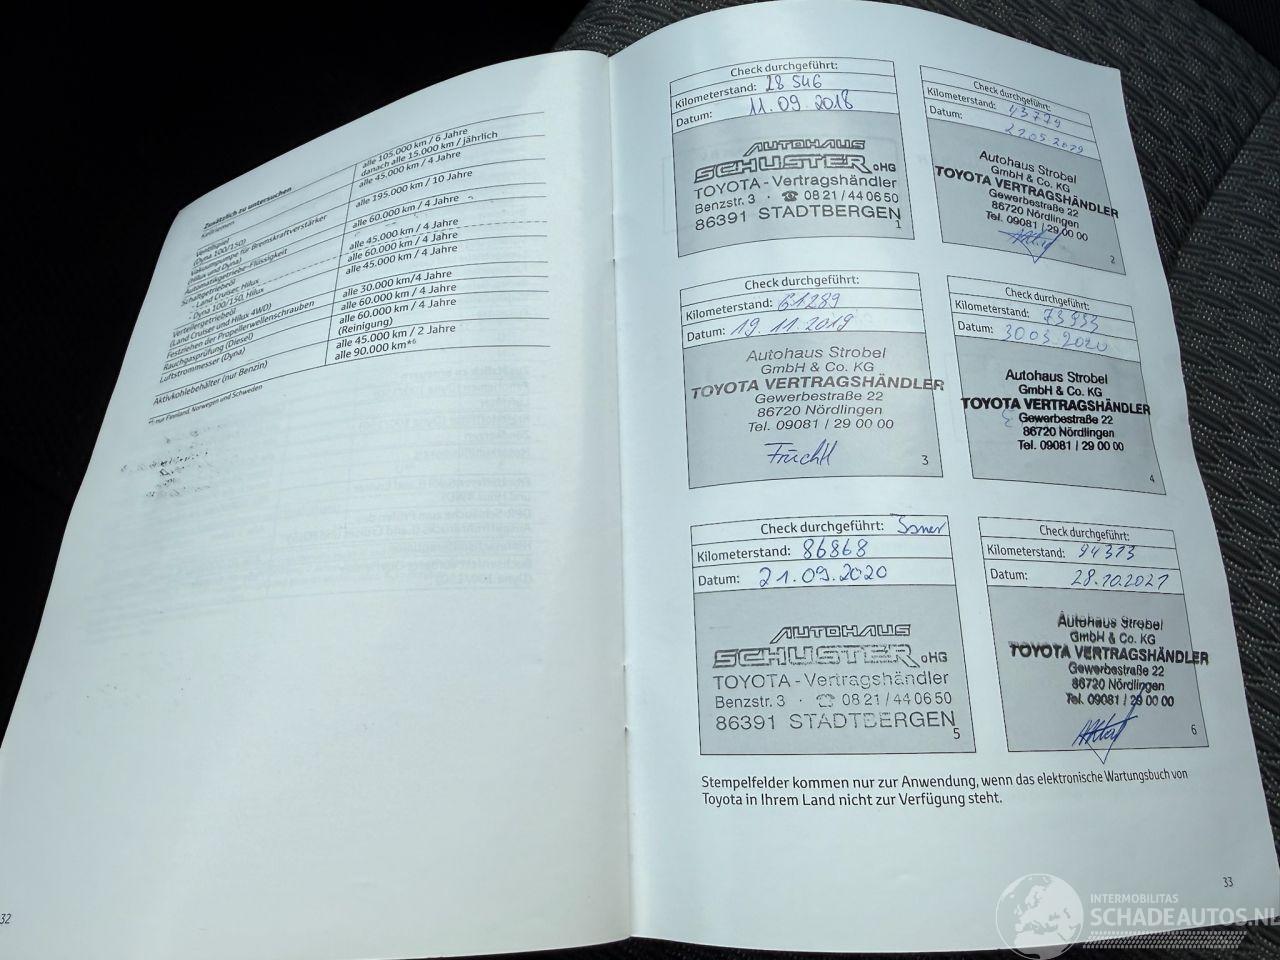 Zusätzlich zu untersuchen
Keilriemen
alle 105.000 km / 6 Jahre
danach alle 15.000 km / jährlich
Ventilspiel
(Dyna 100/150)
alle 45.000 km / 4 Jahre
Vakuumpumpe für Bremskraftverstärker
(Hilux und Dyna)
alle 195.000 km / 10 Jahre
Automatikgetriebe-Flüssigkeit
alle 60.000 km / 4 Jahre
Schaltgetriebeöl
- Land Cruiser, Hilux
alle 45.000 km / 4 Jahre
- Dyna 100/150, Hilux
alle 60.000 km / 4 Jahre
Verteilergetriebeöl
(Land Cruiser und Hilux 4WD)
alle 45.000 km / 4 Jahre
Festziehen der Propellerwellenschrauben
alle 30.000 km/4 Jahre
Rauchgasprüfung (Diesel)
alle 60.000 km / 4 Jahre
Luftstrommesser (Dyna)
alle 60.000 km / 4 Jahre
(Reinigung)
Aktivkohlebehälter (nur Benzin)
alle 45.000 km / 2 Jahre
alle 90.000 km*⁶
*⁶ nur Finnland, Norwegen und Schweden
32
Check durchgeführt:
Kilometerstand: 28 546
Datum: 11.09.2018
AUTOHAUS
SCHUSTER oHG
TOYOTA - Vertragshändler
Benzstr. 3 · ☎ 08 21 / 44 06 50
86391 STADTBERGEN
1
Check durchgeführt:
Kilometerstand: 43779
Datum: 22.05.2019
Autohaus Strobel
GmbH & Co. KG
TOYOTA VERTRAGSHÄNDLER
Gewerbestraße 22
86720 Nördlingen
Tel. 09081 / 29 00 00
2
Check durchgeführt:
Kilometerstand: 61289
Datum: 19.11.2019
Autohaus Strobel
GmbH & Co. KG
TOYOTA VERTRAGSHÄNDLER
Gewerbestraße 22
86720 Nördlingen
Tel. 09081 / 29 00 00
3
Check durchgeführt:
Kilometerstand: 73933
Datum: 30.03.2020
Autohaus Strobel
GmbH & Co. KG
TOYOTA VERTRAGSHÄNDLER
Gewerbestraße 22
86720 Nördlingen
Tel. 09081 / 29 00 00
4
Check durchgeführt:
Kilometerstand: 86868
Datum: 21.09.2020
AUTOHAUS
SCHUSTER oHG
TOYOTA - Vertragshändler
Benzstr. 3 · ☎ 08 21 / 44 06 50
86391 STADTBERGEN
5
Check durchgeführt:
Kilometerstand: 94313
Datum: 28.10.2021
Autohaus Strobel
GmbH & Co. KG
TOYOTA VERTRAGSHÄNDLER
Gewerbestraße 22
86720 Nördlingen
Tel. 09081 / 29 00 00
6
Stempelfelder kommen nur zur Anwendung, wenn das elektronische Wartungsbuch von
Toyota in Ihrem Land nicht zur Verfügung steht.
33
INTERMOBILITAS
SCHADEAUTOS.NL